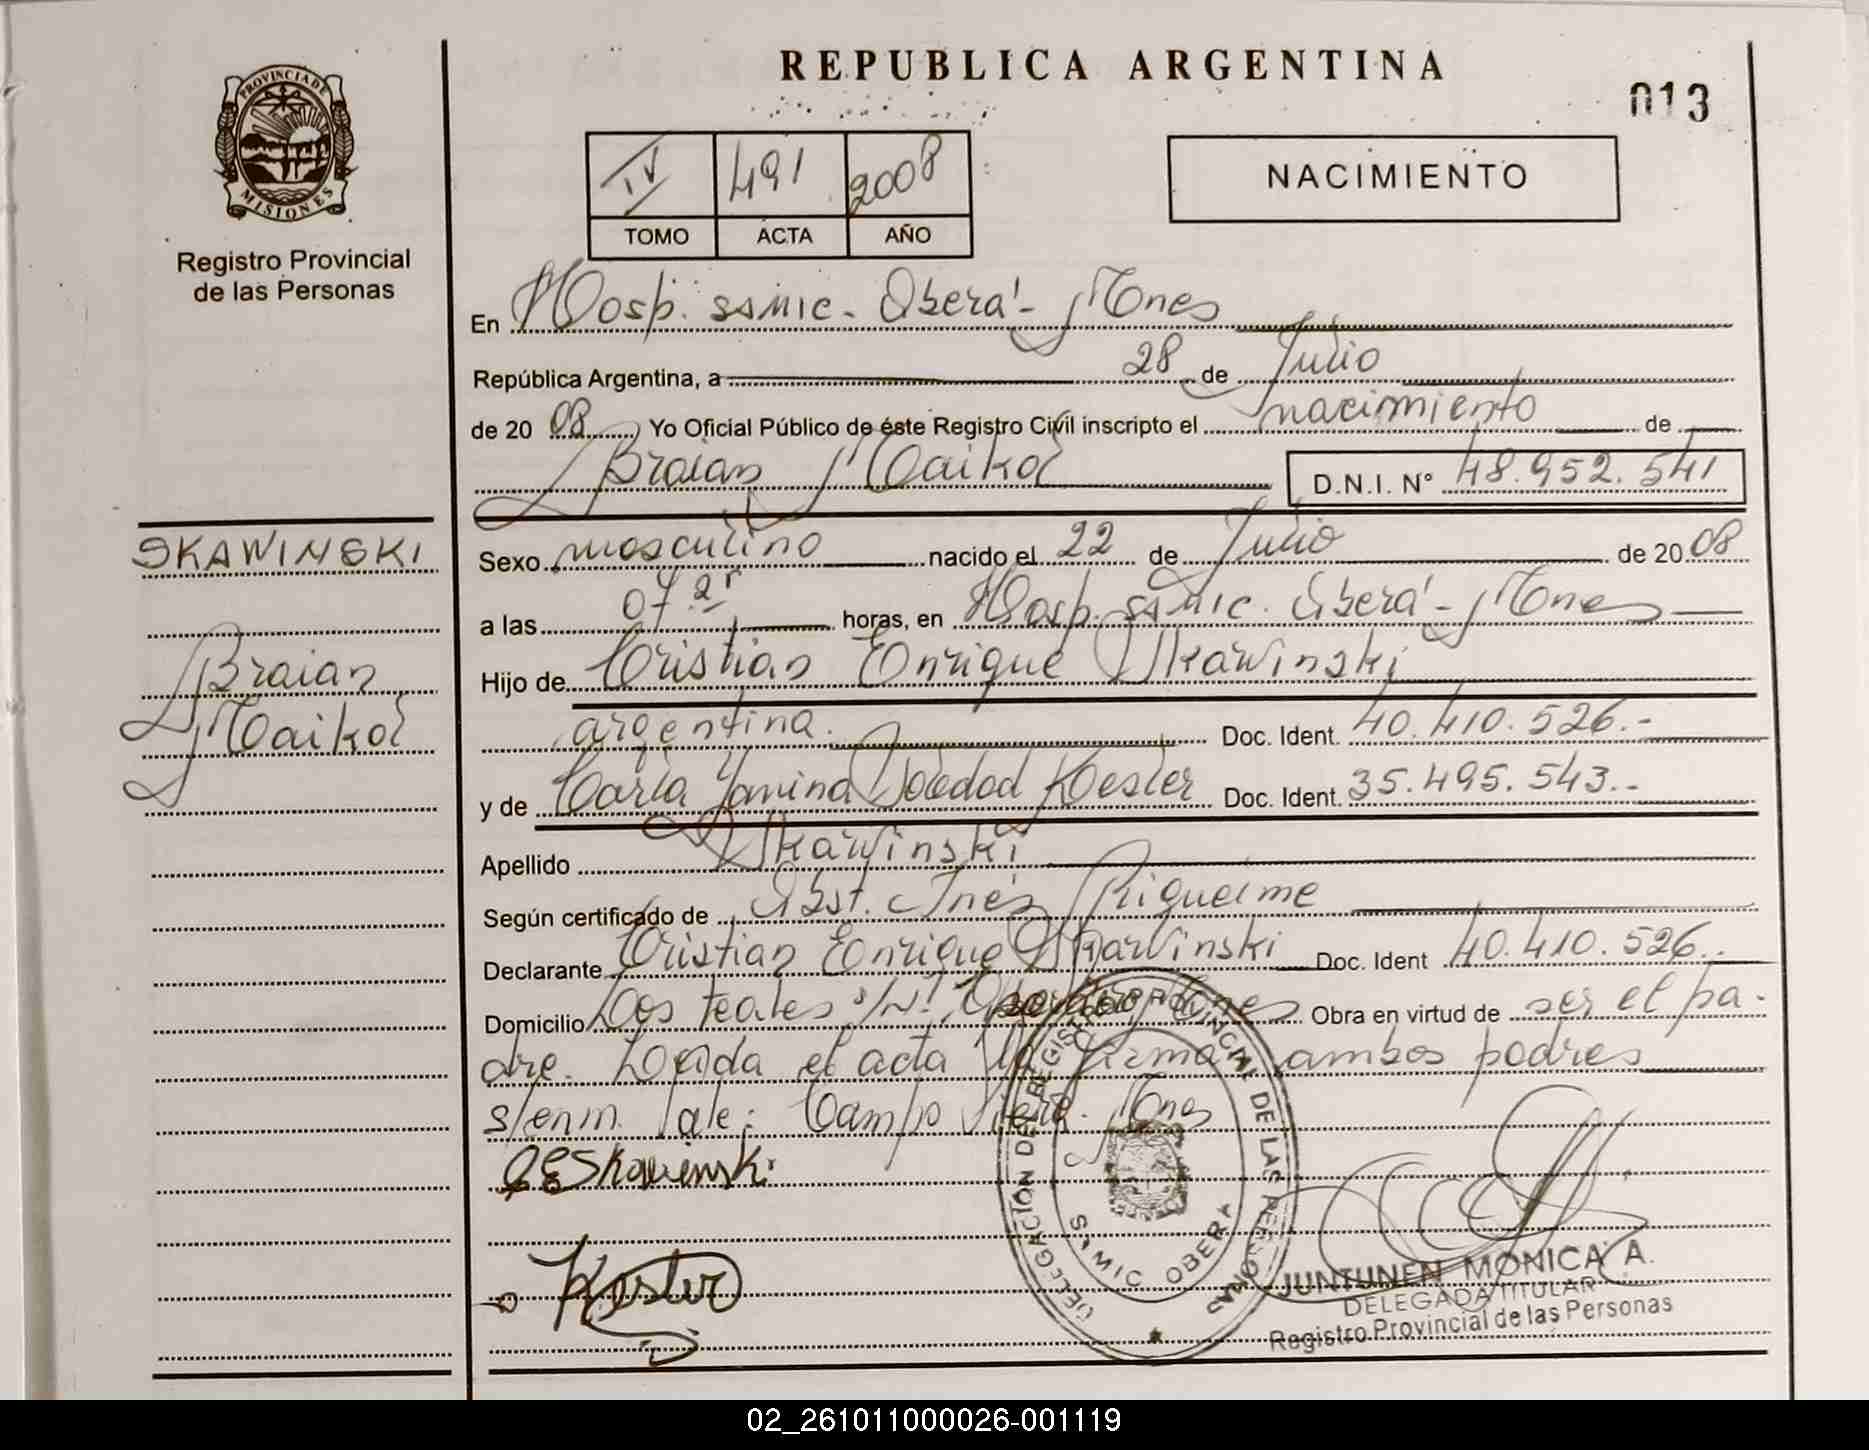 REPUBLICA ARGENTINA
013
PROVINCIA DE
MISIONES
Registro Provincial
de las Personas
IV 491 2008
TOMO ACTA AÑO
NACIMIENTO
En Hosp. SSMIC. Oberá - Mnes
República Argentina, a 28 de Julio
de 2008 Yo Oficial Público de éste Registro Civil inscripto el nacimiento de
Braian Maikol D.N.I. N° 48.952.541
SKAWINSKI
Braian
Maikol
Sexo masculino nacido el 22 de Julio de 2008
a las 07 horas, en Hosp. SSMIC. Oberá - Mnes
Hijo de Cristian Enrique Skawinski
argentina. Doc. Ident. 40.410.526.-
y de Carla Yanina Soledad Kester Doc. Ident. 35.495.543.-
Apellido Skawinski
Según certificado de Obst. Inés Riquelme
Declarante Cristian Enrique Skawinski Doc. Ident 40.410.526.
Domicilio Los teales s/Nº. Mnes Obra en virtud de ser el pa-
dre. Leída el acta la firman ambos padres
s/enm. Vale: Campo Viera. Mnes
CESkawinski
Kester
DELEGACIÓN DEL REGISTRO PROVINCIAL DE LAS PERSONAS
S.MIC OBERA
JUNTUNEN MONICA A.
DELEGADA TITULAR
Registro Provincial de las Personas
02_261011000026-001119